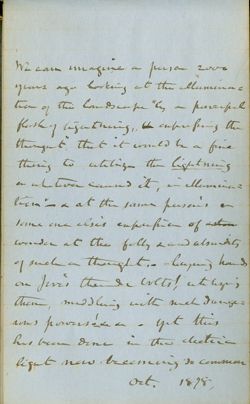 We can imagine a person 2000
years ago looking at the illumina-
tion of the landscape by a powerful
flash of lightning, & expressing the
thought that it would be a fine
thing to utilize the lightning
or whatever caused it, in illumina-
tion - & at the same person's or
some one else's expression of
wonder at the folly & and absurdity
of such a thought. - laying hands
on Jove's thunder bolts! utilizing
them, meddling with such danger-
ous powers &c &c - Yet this
has been done in the electric
light now becoming so common
Oct. 1878.